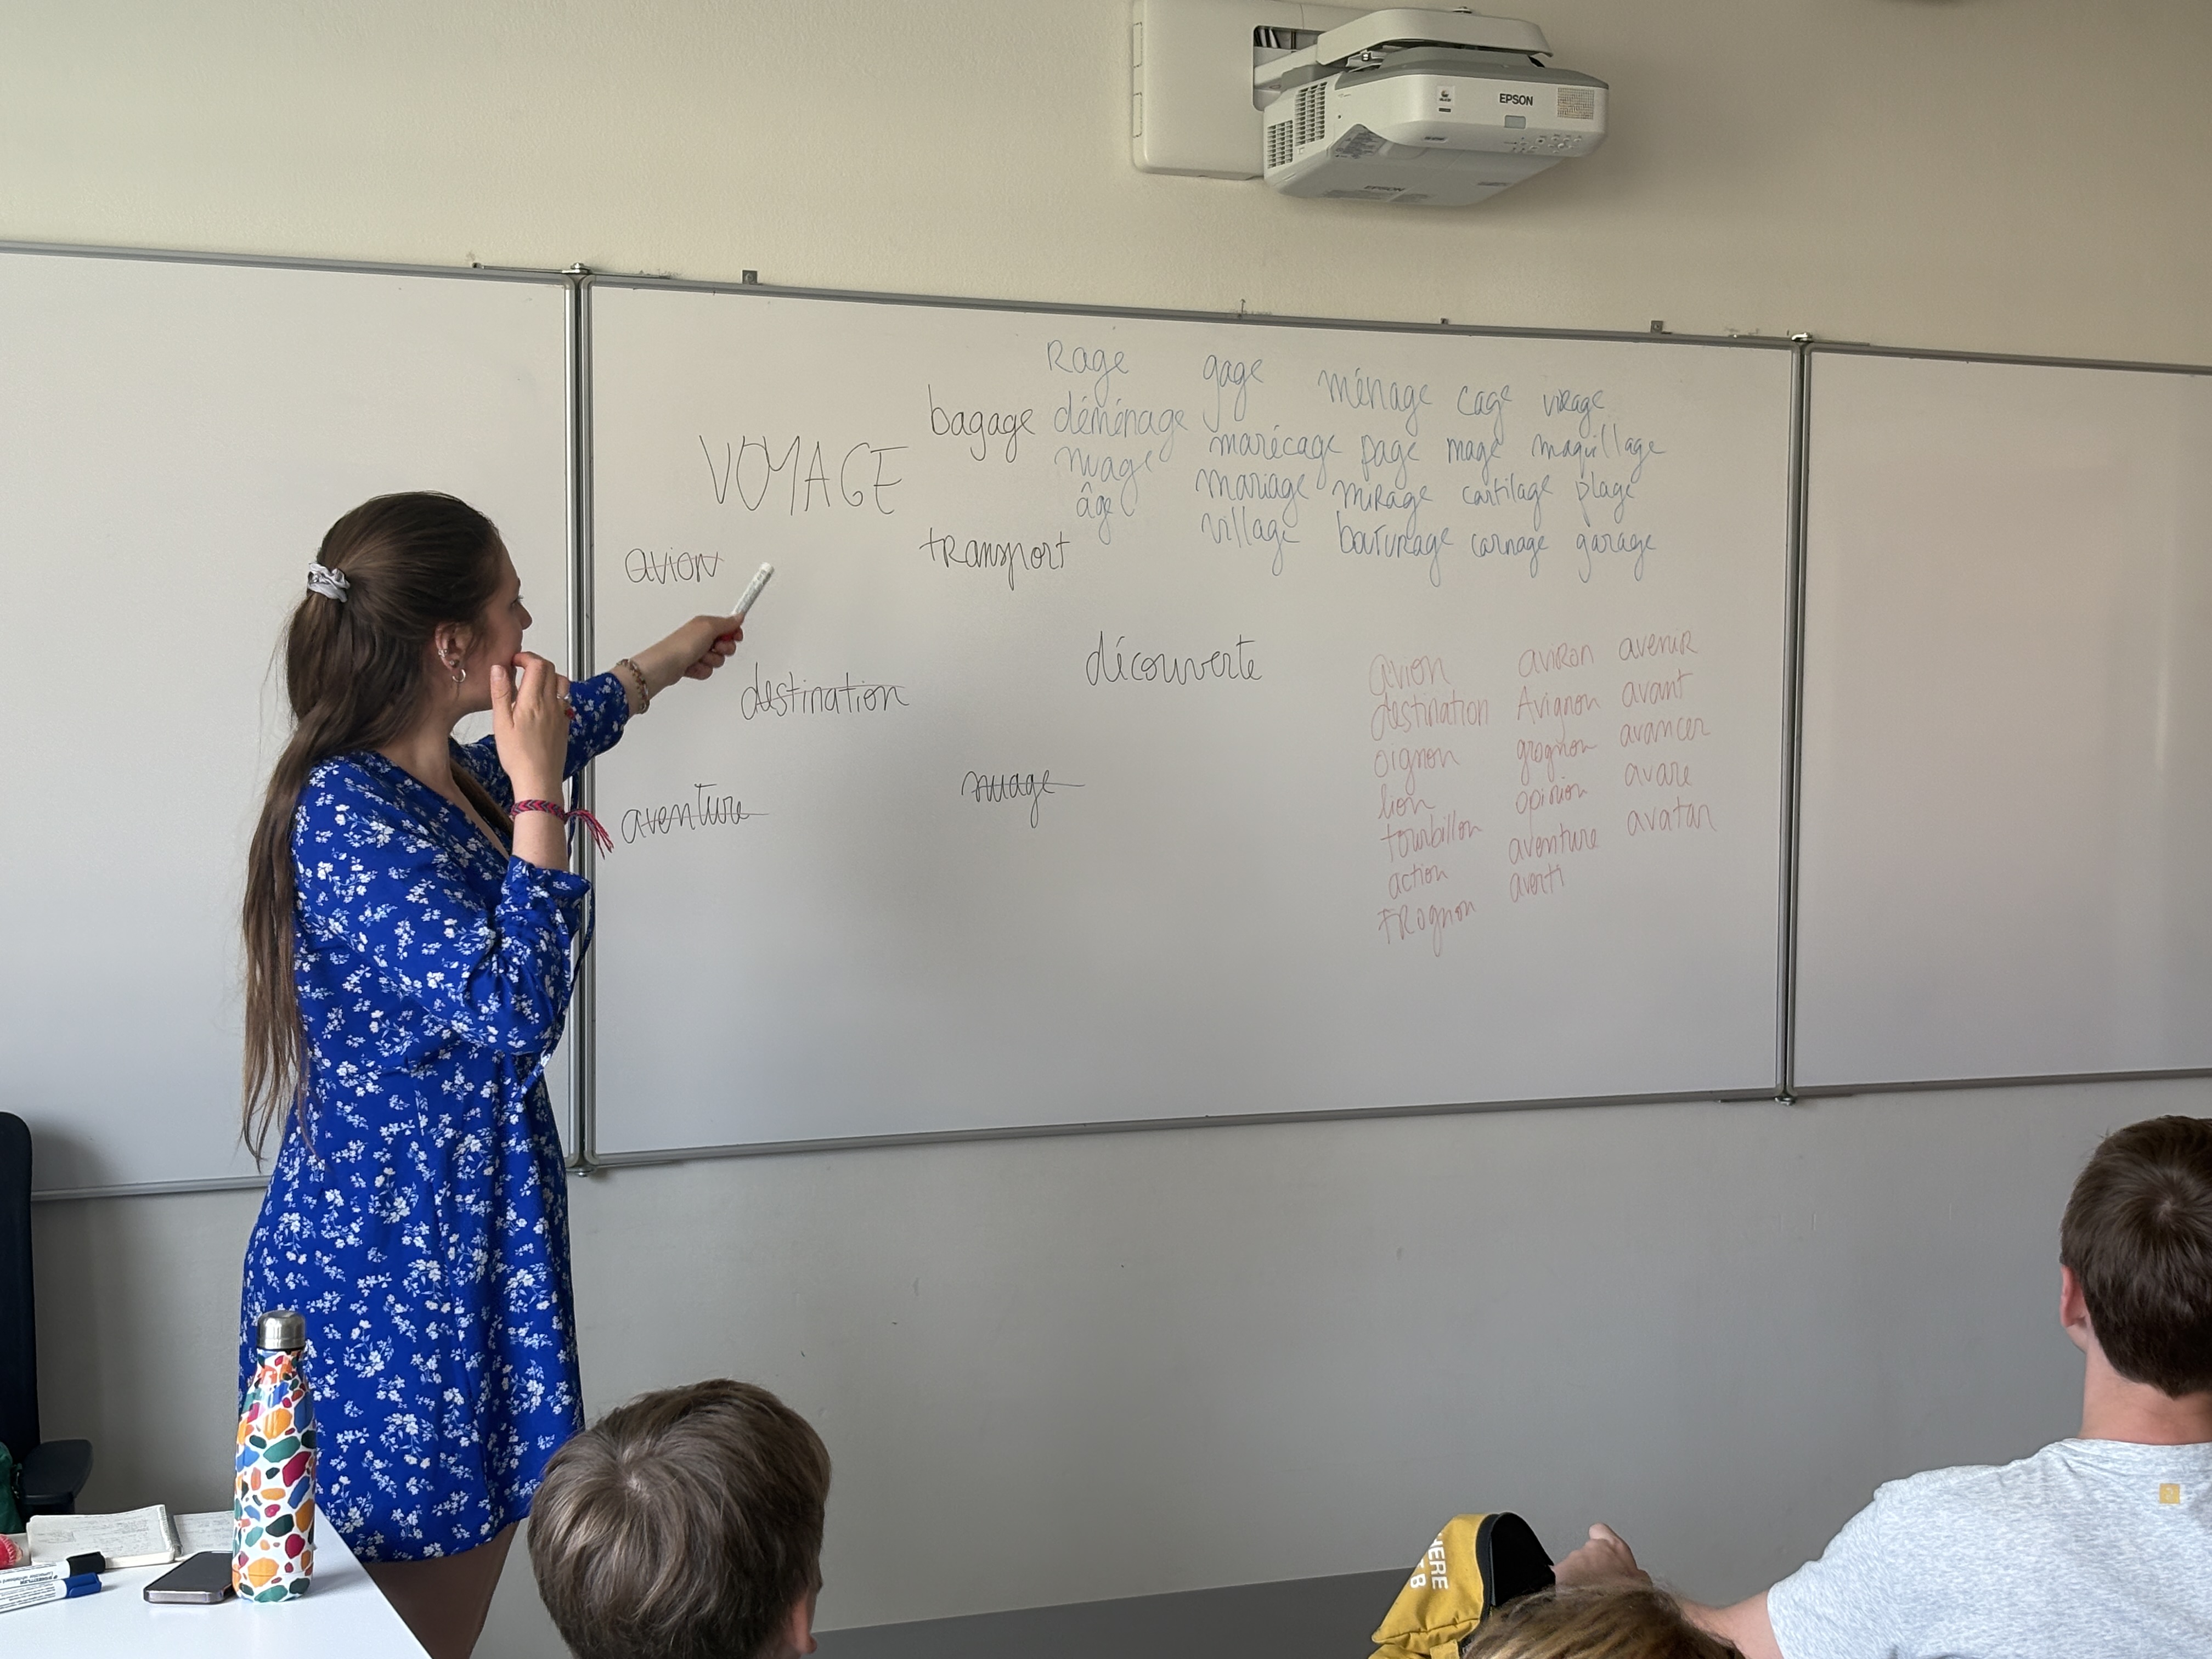 EPSON
EPSON
Rage gage ménage cage virage
bagage déménage marécage page mage maquillage
VOYAGE nuage mariage mirage cartilage plage
âge village bouturage carnage garage
avion transport
destination découverte
aventure nuage
avion aviron avenir
destination Avignon avant
oignon grognon avancer
lion opinion avare
tourbillon aventure avatar
action averti
FRognon
HERE